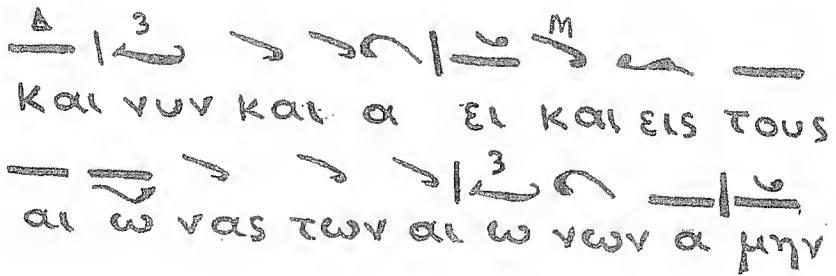 Δ 3 M
και νυν και α ει και εις τους
3
αι ω νας των αι ω νων α μην